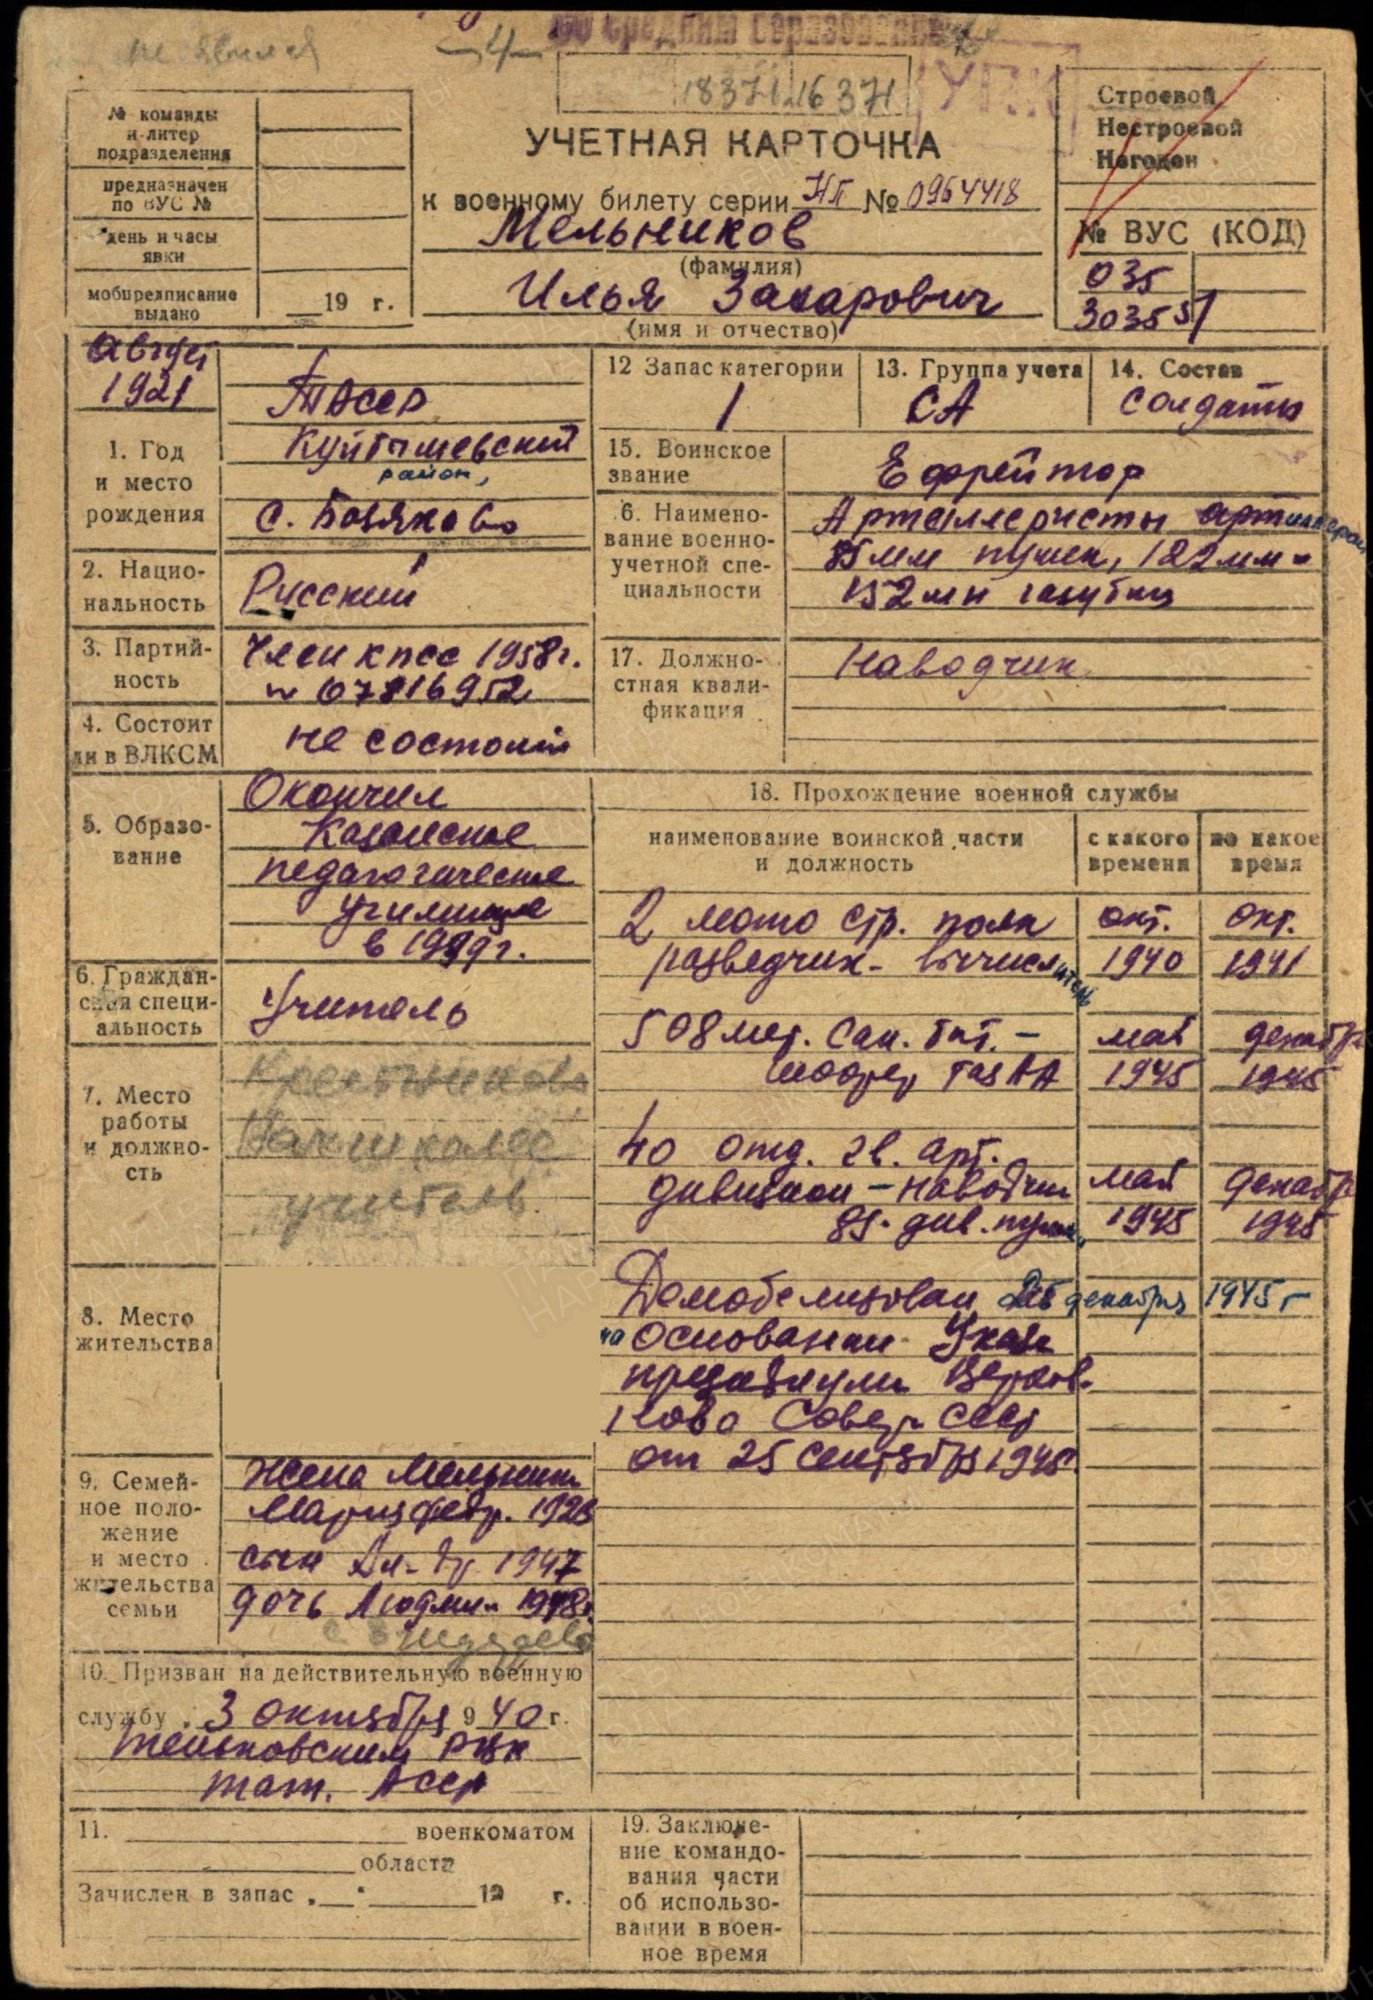 не явился
-4-
со средним образованием
18371 16371
УПК
№ команды
и литер
подразделения
предназначен
по ВУС №
день и часы
явки
мобпредписание
выдано
19 г.
УЧЕТНАЯ КАРТОЧКА
к военному билету серии НП № 0964418
Мельников
(фамилия)
Илья Захарович
(имя и отчество)
Строевой
Нестроевой
Негоден
№ ВУС (КОД)
035
3035 51
Август
1921
1. Год
и место
рождения
ТАССР
Куйбышевский
район,
с.
2. Нацио-
нальность
Русский
3. Партий-
ность
Член КПСС 1958 г.
№ 07816952
4. Состоит
ли в ВЛКСМ
не состоит
5. Образо-
вание
Окончил
Казанское
педагогическое
училище
в г.
6. Граждан-
ская специ-
альность
Учитель
7. Место
работы
и должно-
сть
Крестниково
Нач школе
учитель
8. Место
жительства
9. Семей-
ное поло-
жение
и место
жительства
семьи
жена Мельник
Мария Федр. 1923
сын 1947
дочь Людмил 1948
с.
10. Призван на действительную военную
службу 3 октября 940 г.
Теньковским РВК
тат. АССР
11. военкоматом
области
Зачислен в запас „ “ 19 г.
12 Запас категории
1
13. Группа учета
СА
14. Состав
солдаты
15. Воинское
звание
Ефрейтор
6. Наимено-
вание военно-
учетной спе-
циальности
Артиллеристы артиллерии
85 мм пушек, 122 мм -
152 мм гаубиц
17. Должно-
стная квали-
фикация
Наводчик
18. Прохождение военной службы
наименование воинской части
и должность
с какого
времени
по какое
время
2 мото стр. полк окт. окт.
разведчик - вычислитель 1940 1941
508 мед. сан. бат. - май декабр
шофер ГАЗ АА 1945 1945
40 отд. гв. арт.
дивизион - наводчик май декабр
85. див. пушк. 1945 1945
Демобелизован 26 декабря 1945 г
на основании Указа
президиума Верхов-
ново Совета СССР
от 25 сентября 1945.
19. Заключе-
ние командо-
вания части
об использо-
вании в воен-
ное время